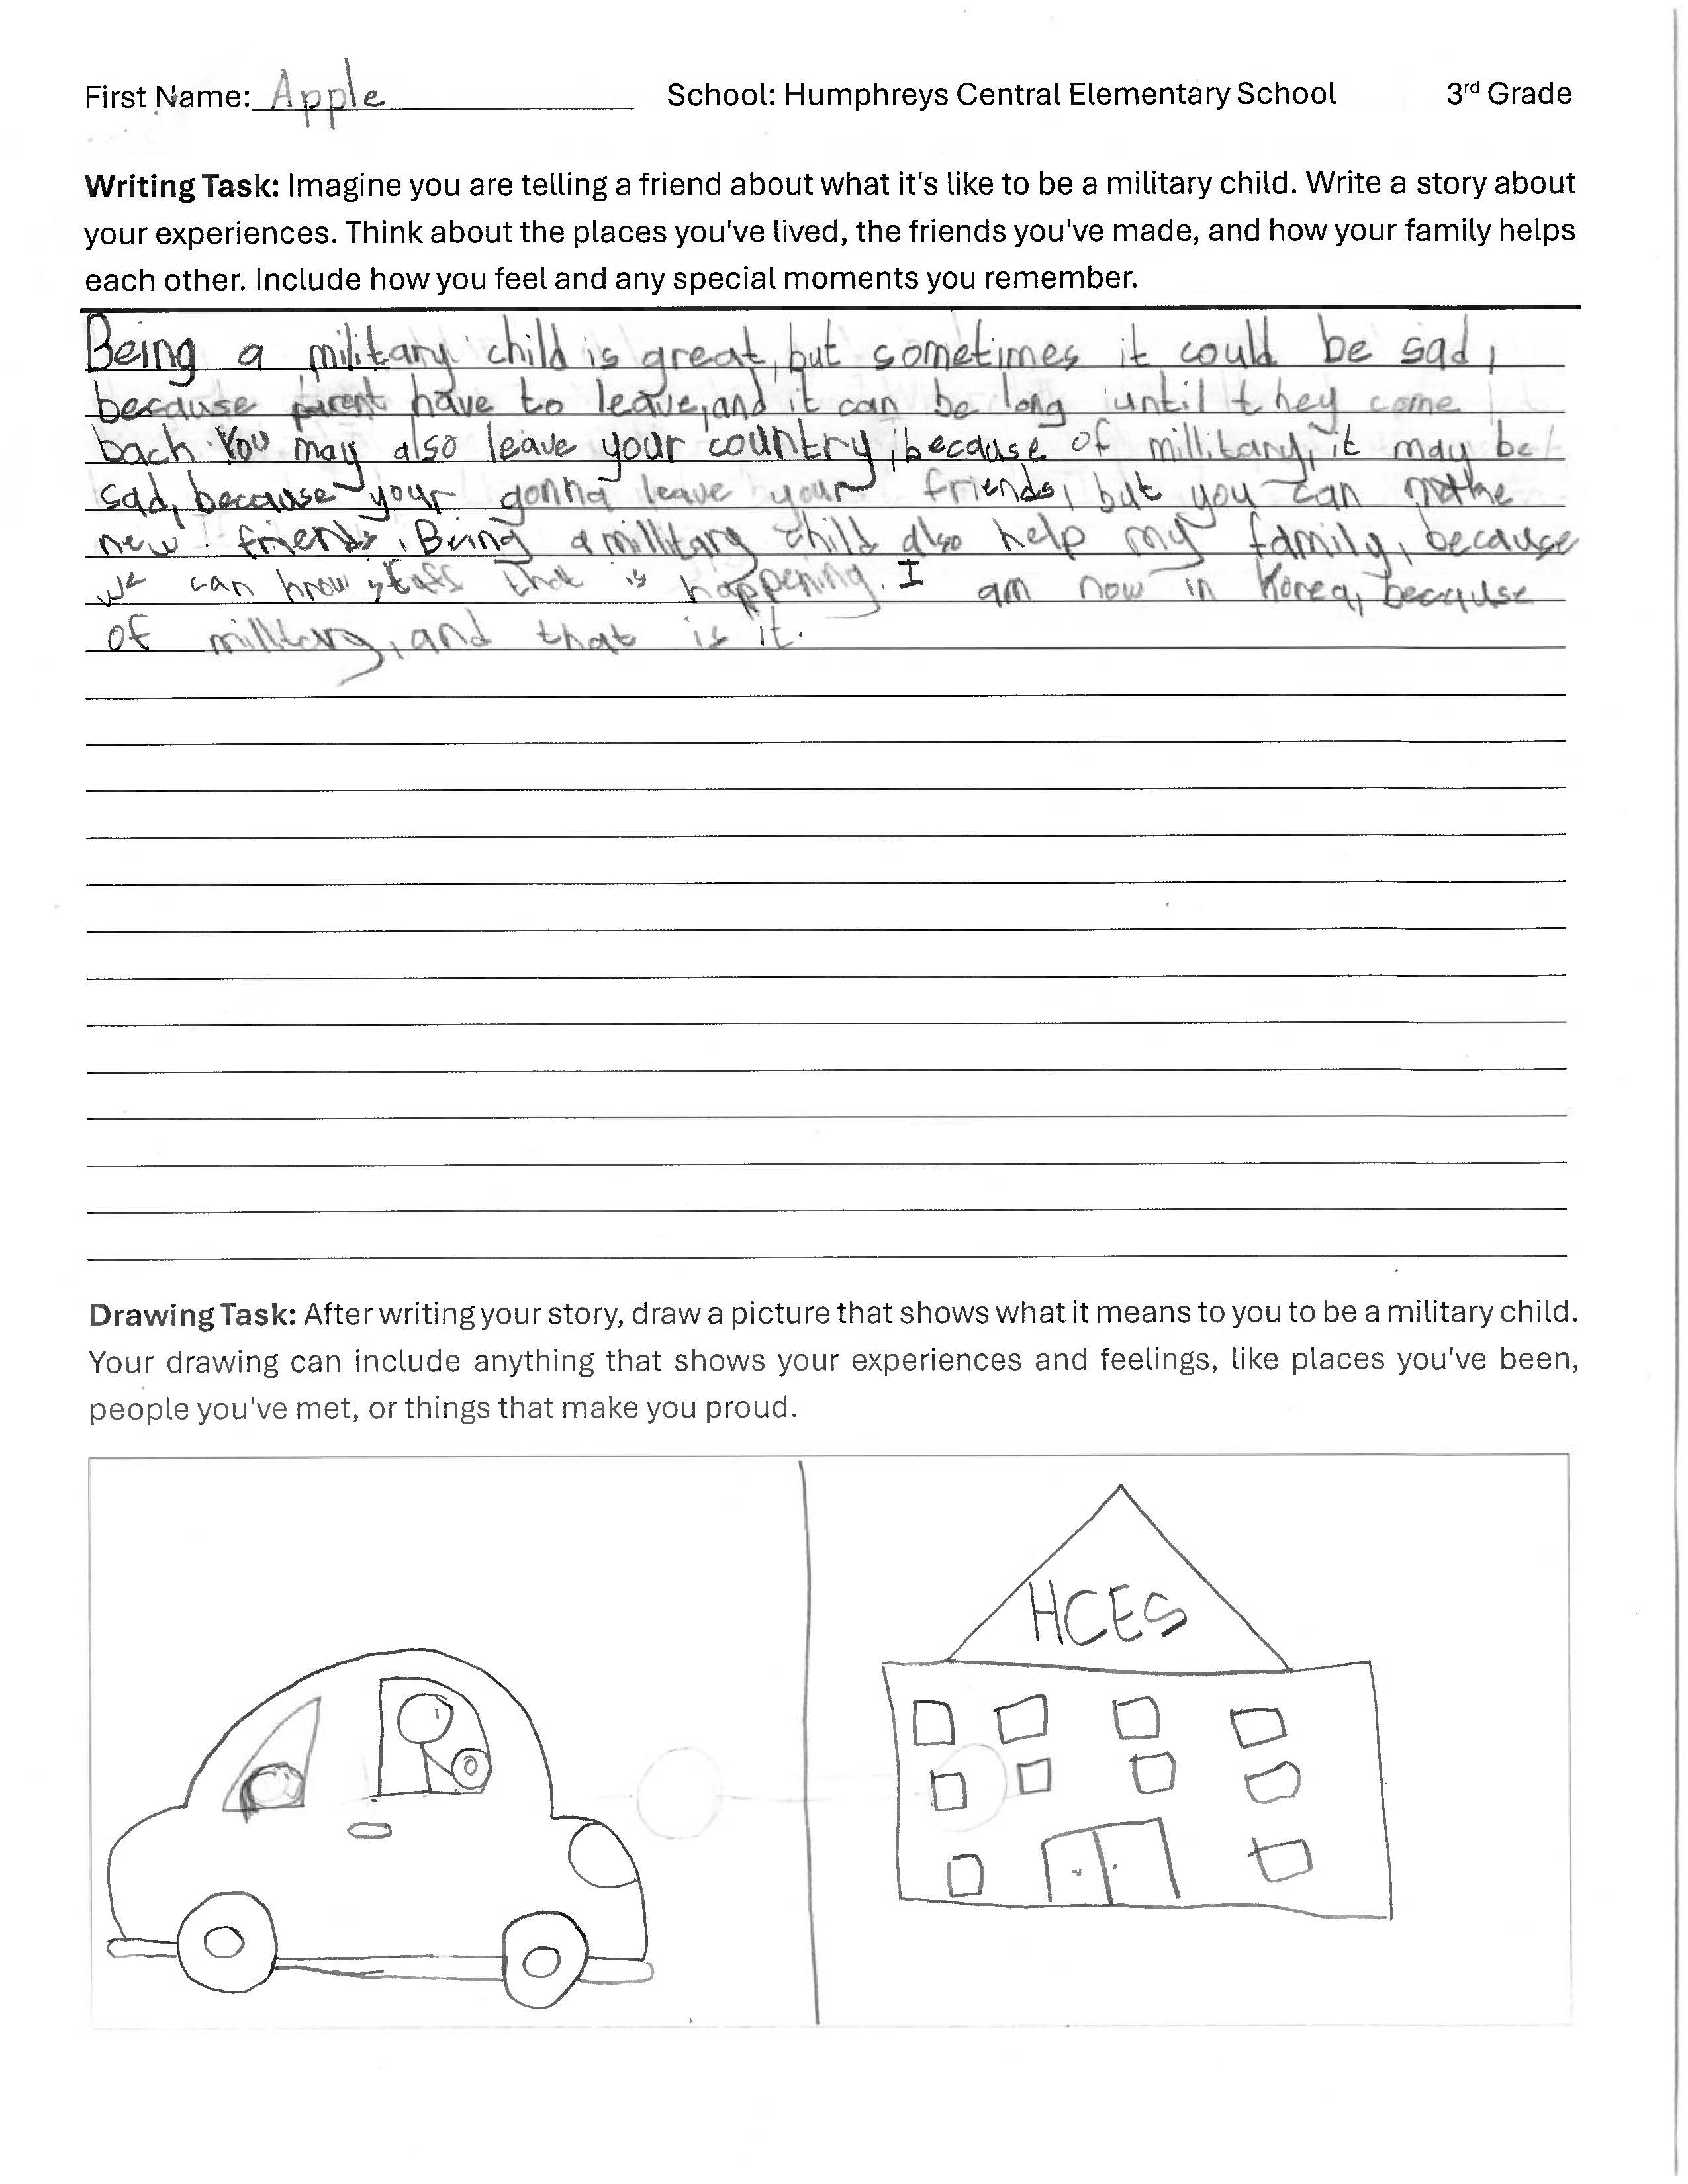 First Name: Apple School: Humphreys Central Elementary School 3rd Grade
Writing Task: Imagine you are telling a friend about what it's like to be a military child. Write a story about
your experiences. Think about the places you've lived, the friends you've made, and how your family helps
each other. Include how you feel and any special moments you remember.
Being a military child is great, but sometimes it could be sad,
because parent have to leave, and it can be long until they come
back. You may also leave your country, because of millitary, it may be
sad, because your gonna leave your friends, but you can make
new friends. Being a millitary child also help my family, because
we can know stuff that is happening. I am now in Korea, because
of millitary, and that is it.
Drawing Task: After writing your story, draw a picture that shows what it means to you to be a military child.
Your drawing can include anything that shows your experiences and feelings, like places you've been,
people you've met, or things that make you proud.
HCES